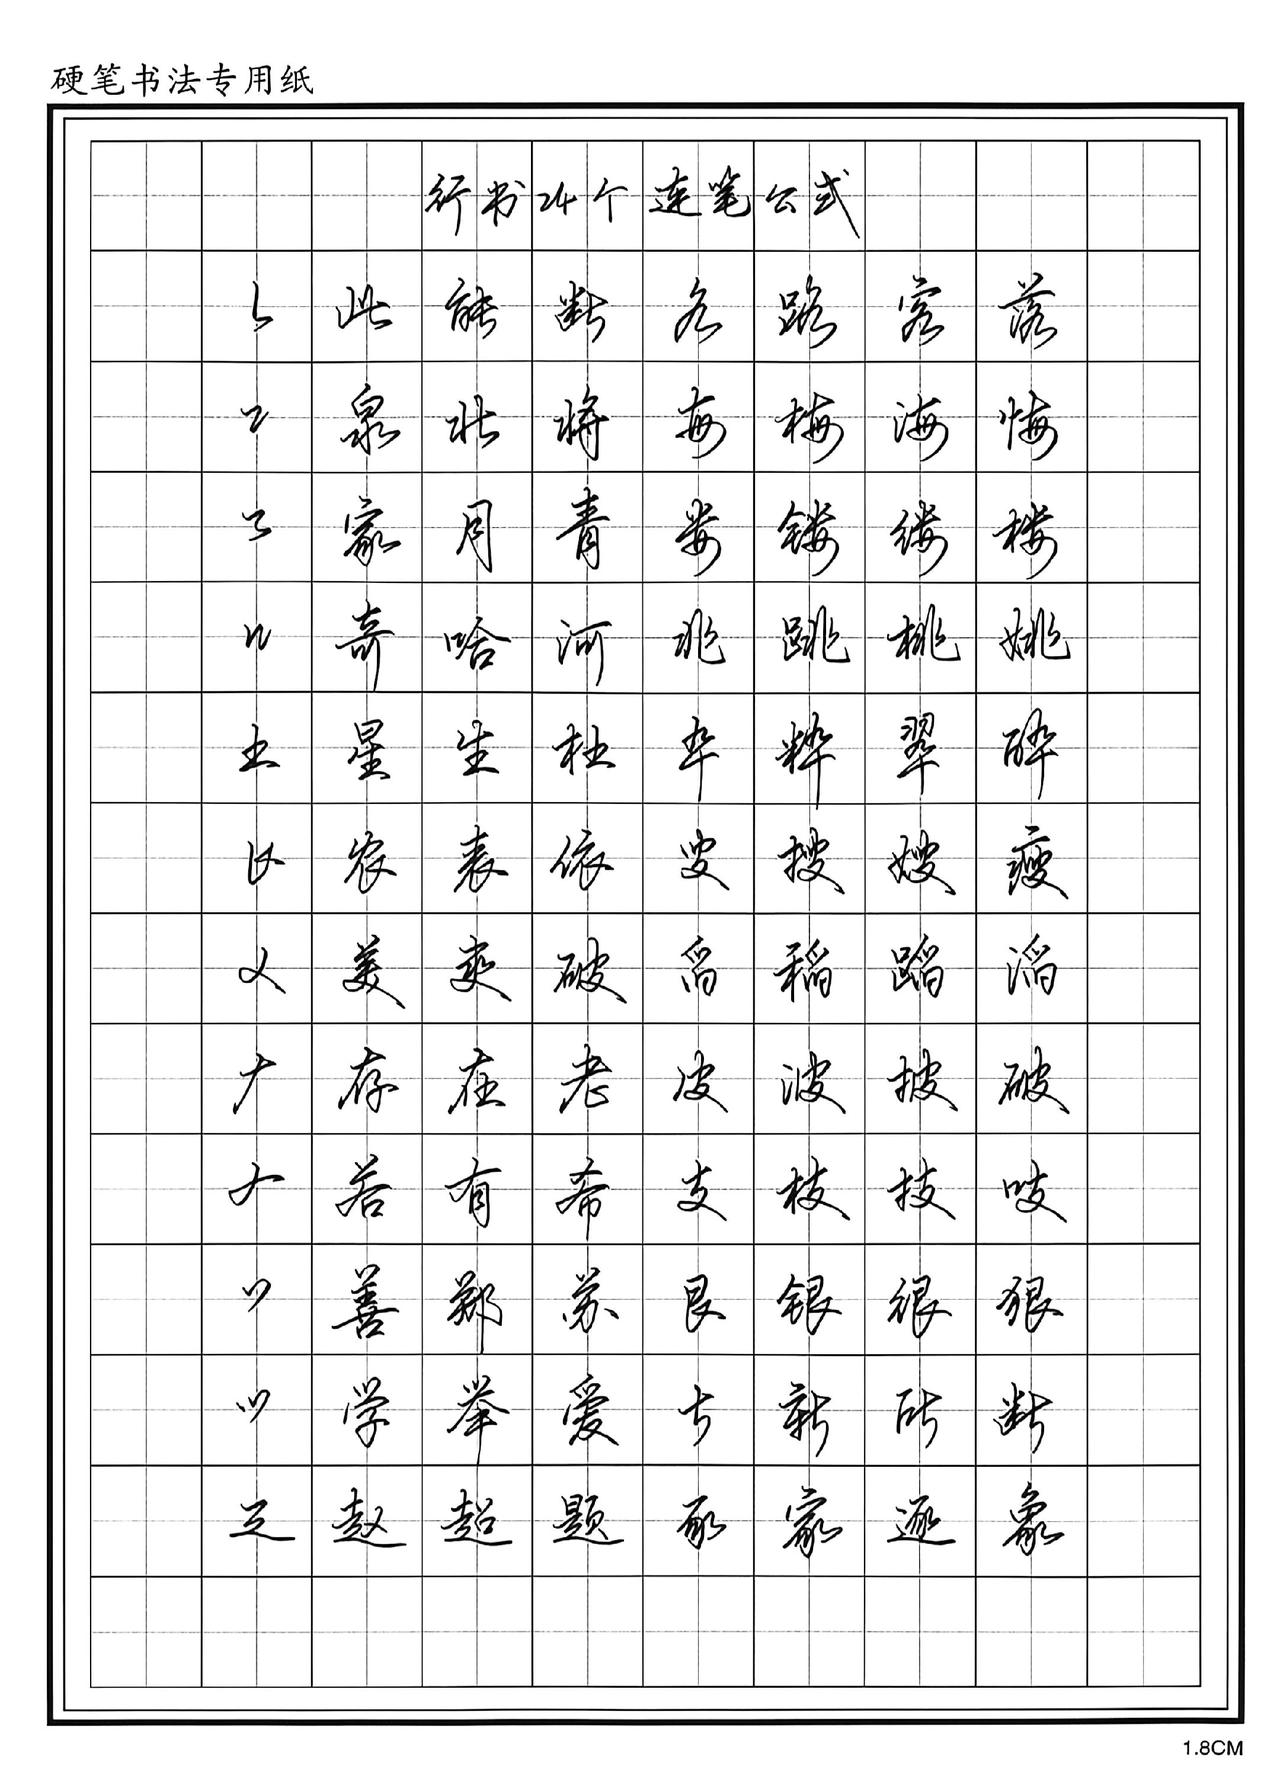 硬笔书法专用纸
行书24个连笔公式
此能断各路客落
泉壮将每梅海悔
家月青娄镂缕楼
奇哈河兆跳桃姚
土星生杜卒粹翠醉
农表依叟搜嫂瘦
美爽破舀稻蹈滔
存在老皮波披破
若有希支枝技吱
善郑苏艮银很狠
学举爱斤新所断
赵超题豕家逐象
1.8CM